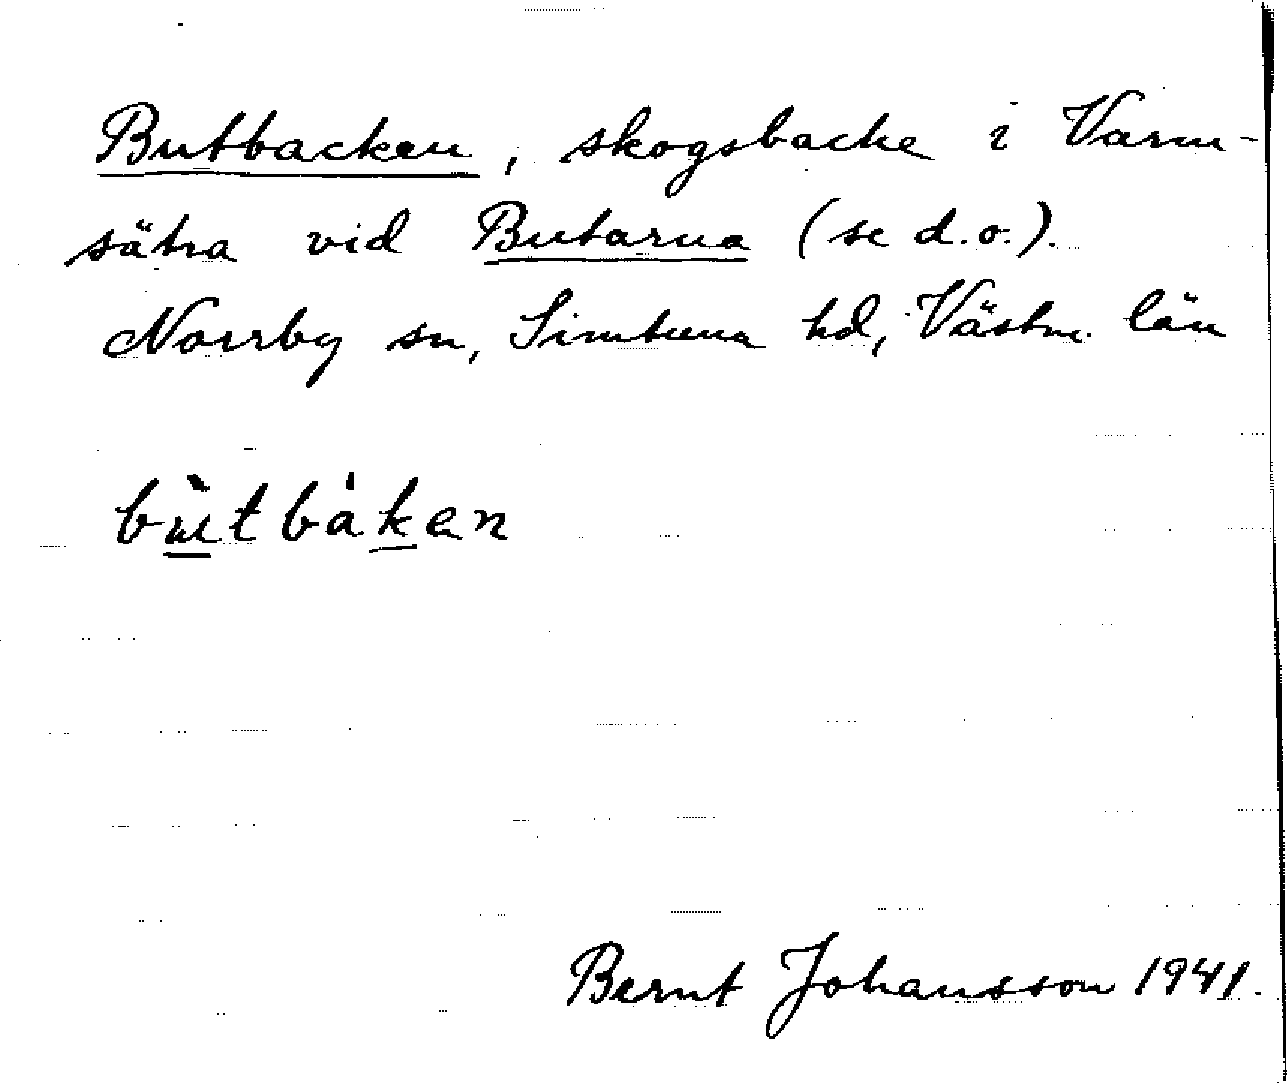 Butbacken, skogsbacke i Varm-
sätra vid Butarna (se d.o.).
Norrby sn, Simtuna hd, Västm. län
bùtbákan
Bernt Johansson 1941.